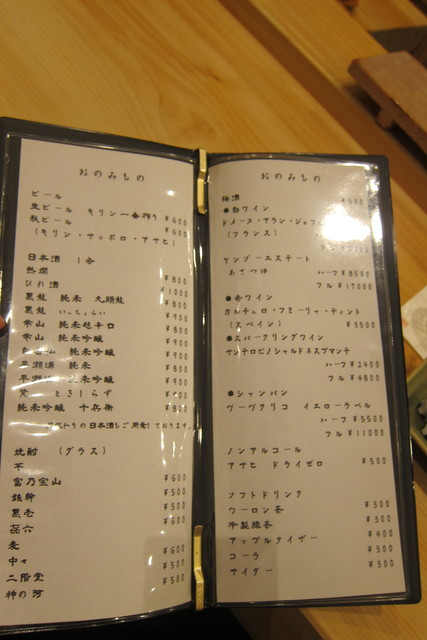 おのみもの
ビール
生ビール キリン一番搾り ¥600
瓶ビール ¥600
(キリン・サッポロ・アサヒ)
日本酒 1合
熱燗 ¥800
ひれ酒 ¥1000
黒龍 純米 九頭龍 ¥800
黒龍 いっちょらい ¥900
常山 純米超辛口 ¥800
常山 純米吟醸 ¥900
純米吟醸 ¥900
早瀬浦 純米 ¥800
早瀬浦 純米吟醸 ¥900
ときしらず ¥900
純米吟醸 十兵衛
の日本酒もご用意しております。
焼酎 (グラス)
芋
富乃宝山 ¥600
鉄幹 ¥500
黒壱 ¥500
㐂六 ¥600
麦
中々 ¥600
二階堂 ¥500
神の河 ¥500
おのみもの
梅酒 ¥500
●白ワイン
ドメーヌ・アラン・ジョフ
(フランス)
ケンゾーエステート
あさつゆ ハーフ ¥8500
フル ¥17000
●赤ワイン
カルチェロ・フミーリャ・ティント
(スペイン) ¥3500
●スパークリングワイン
サンテロピノシャルドネスプマンテ
ハーフ ¥2400
フル ¥4800
●シャンパン
ヴーヴクリコ イエローラベル
ハーフ ¥5500
フル ¥11000
ノンアルコール
アサヒ ドライゼロ ¥500
ソフトドリンク
ウーロン茶 ¥300
冷製緑茶 ¥300
アップルタイザー ¥400
コーラ ¥300
サイダー ¥300